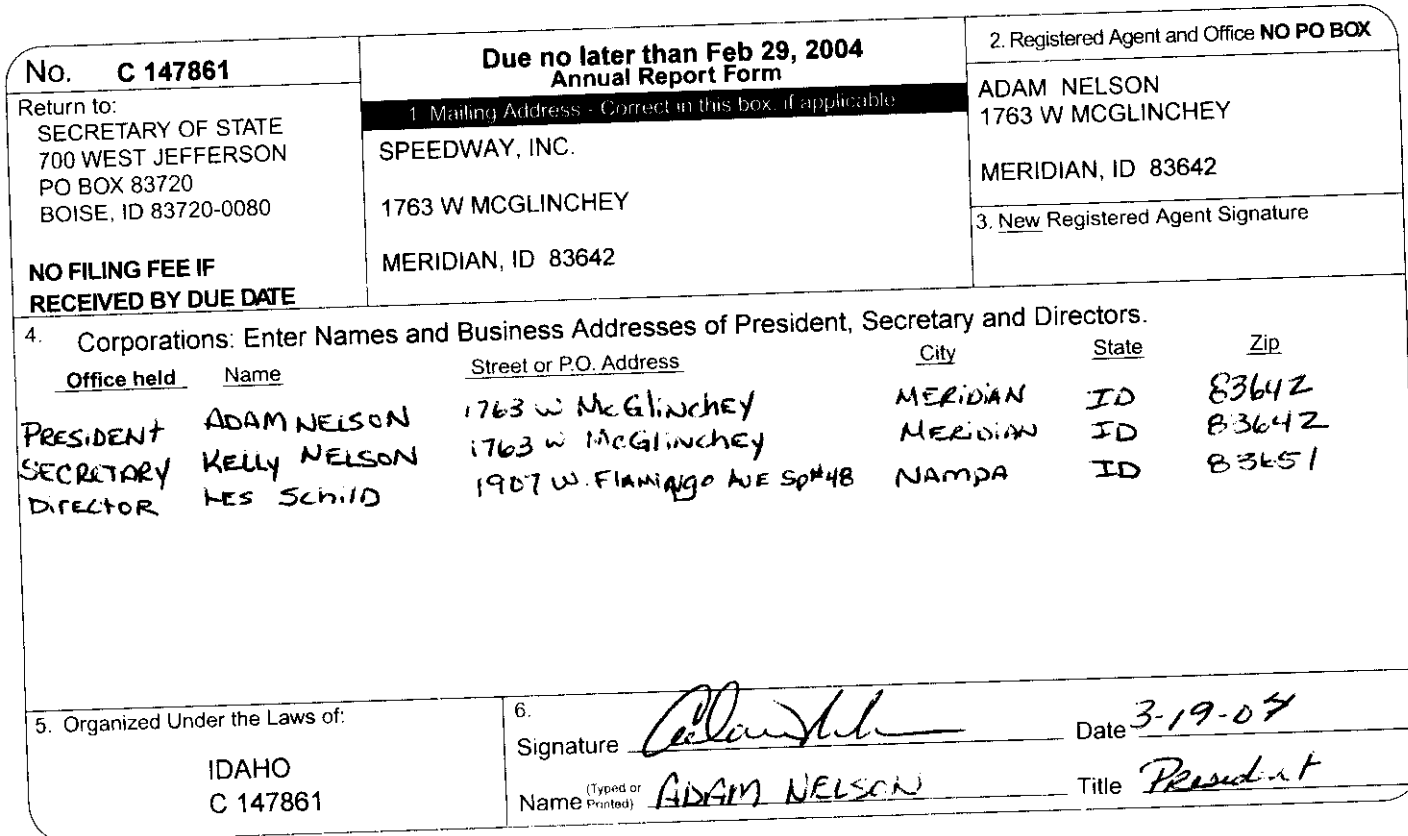 No. C 147861
Return to:
SECRETARY OF STATE
700 WEST JEFFERSON
PO BOX 83720
BOISE, ID 83720-0080
NO FILING FEE IF
RECEIVED BY DUE DATE
Due no later than Feb 29, 2004
Annual Report Form
1 Mailing Address - Correct in this box, if applicable
SPEEDWAY, INC.
1763 W MCGLINCHEY
MERIDIAN, ID 83642
2. Registered Agent and Office NO PO BOX
ADAM NELSON
1763 W MCGLINCHEY
MERIDIAN, ID 83642
3. New Registered Agent Signature
4. Corporations: Enter Names and Business Addresses of President, Secretary and Directors.
Office held Name Street or P.O. Address City State Zip
PRESIDENT ADAM NELSON 1763 W McGlinchey MERIDIAN ID 83642
SECRETARY KELLY NELSON 1763 W McGlinchey MERIDIAN ID 83642
DIRECTOR LES SCHILD 1907 W. FLAMINGO AVE Sp#48 NAMPA ID 83651
5. Organized Under the Laws of:
IDAHO
C 147861
6.
Signature Date 3-19-04
Name (Typed or Printed) ADAM NELSON Title President